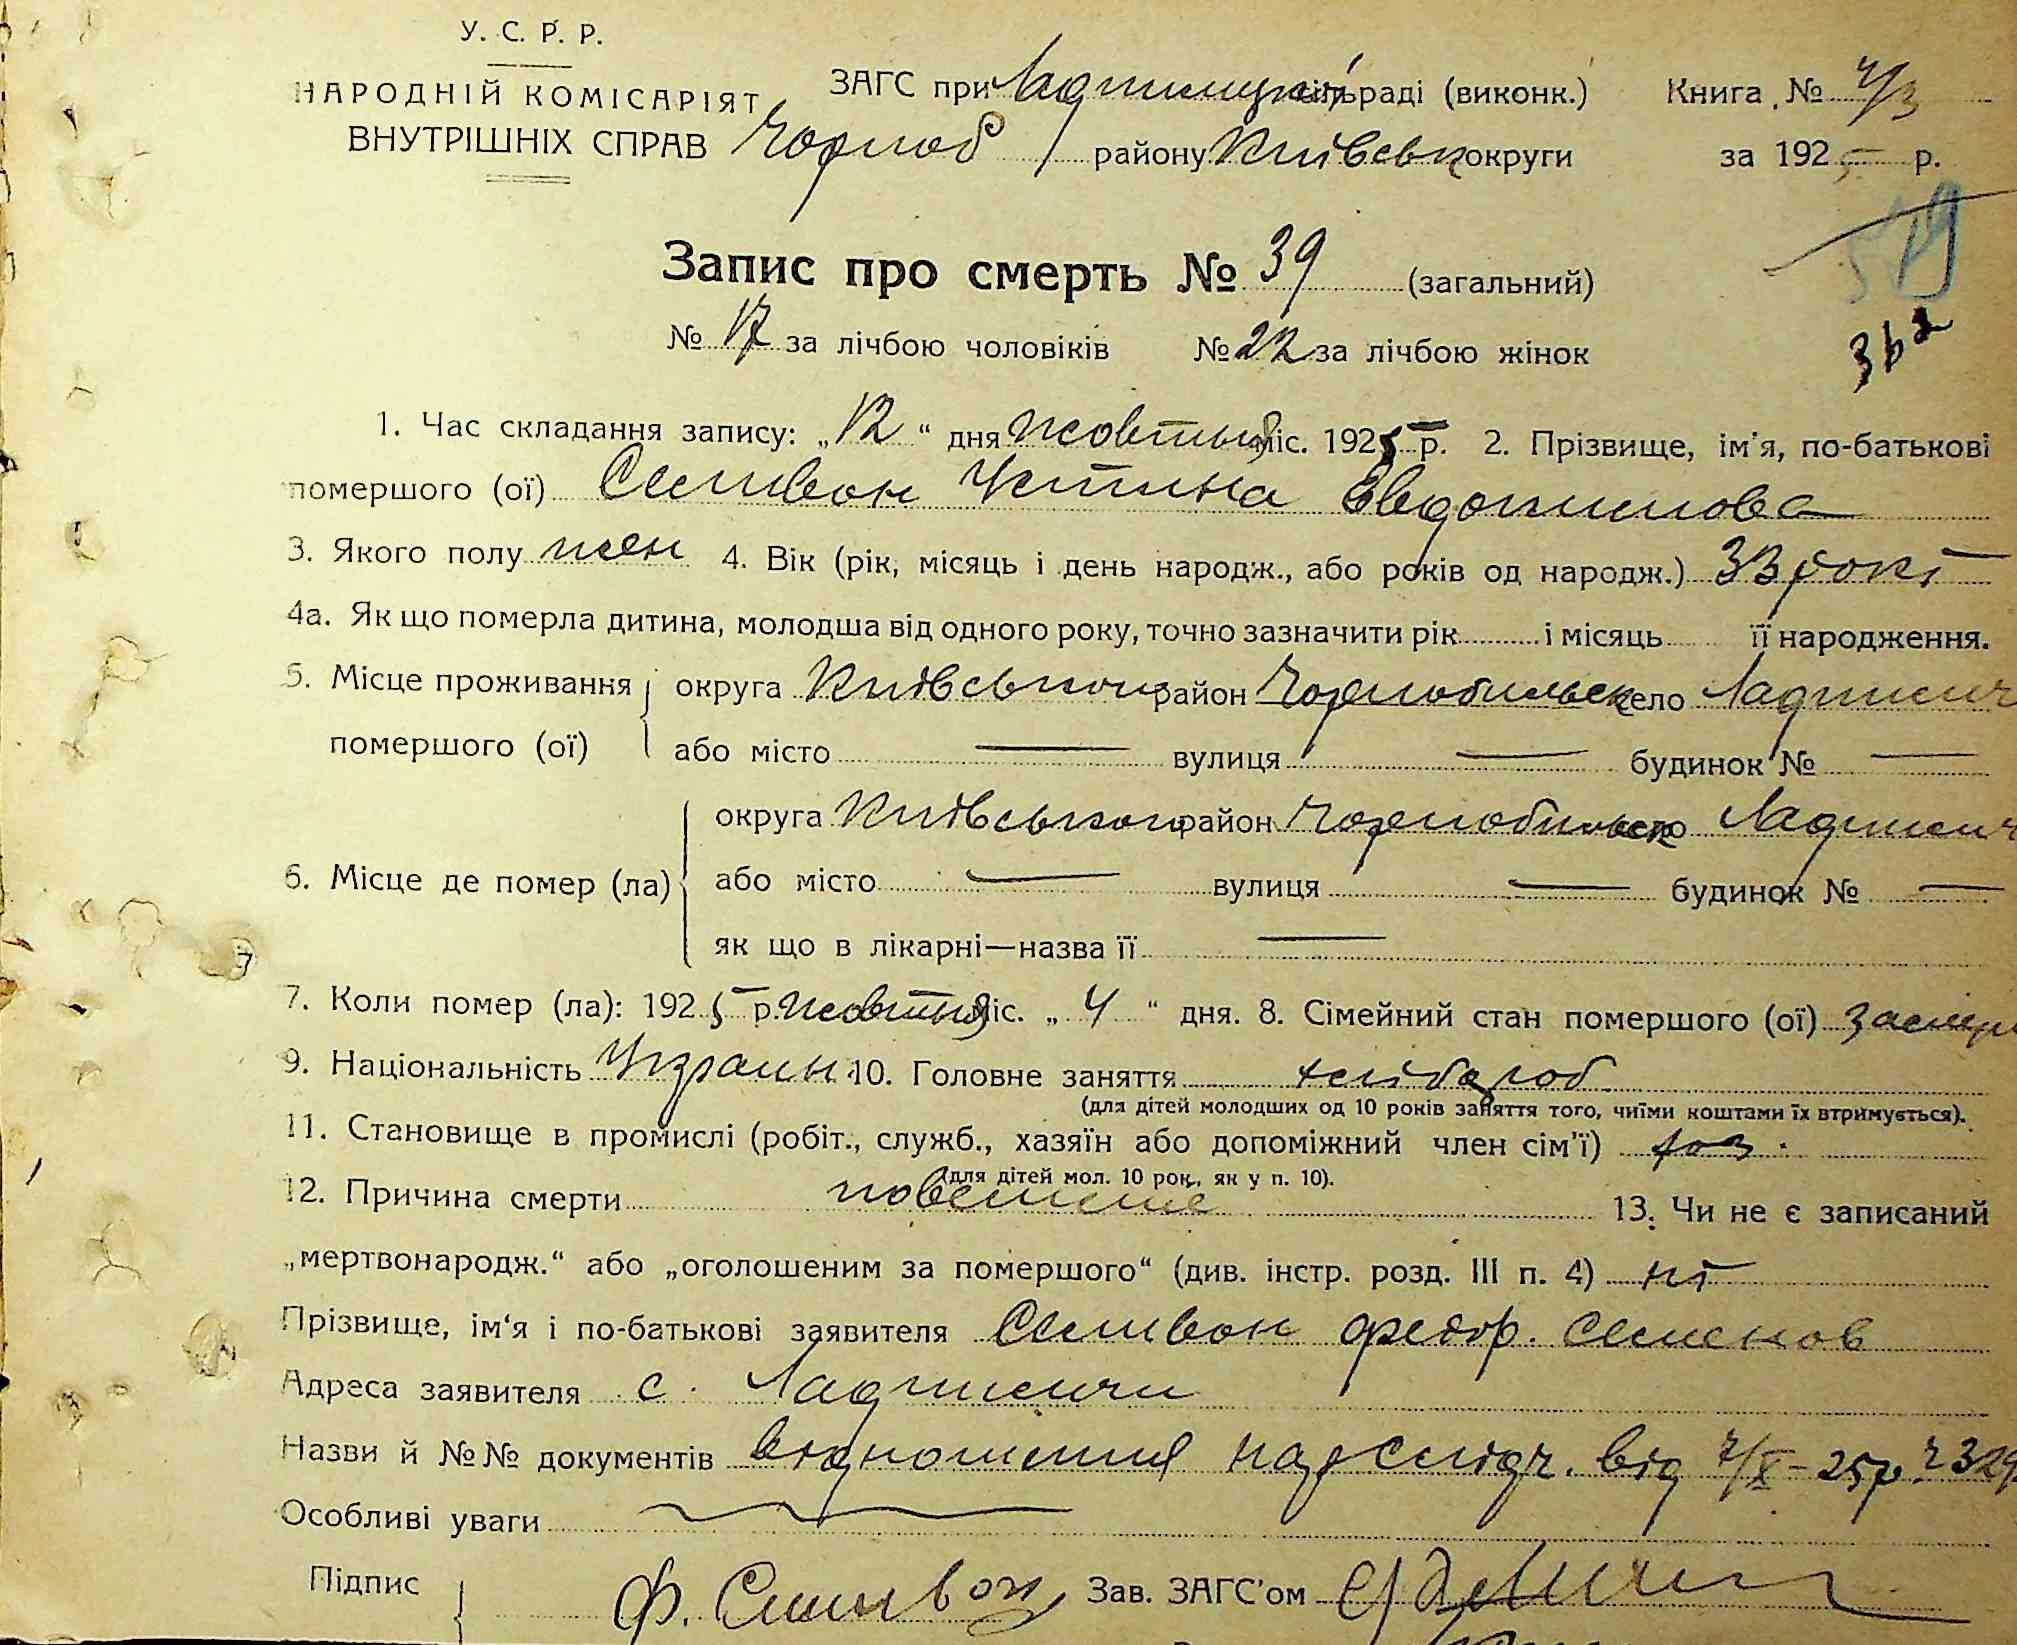 У. С. Р. Р.
НАРОДНІЙ КОМІСАРІЯТ
ВНУТРІШНІХ СПРАВ
ЗАГС при Ладижицькій сільраді (виконк.) Книга № 4/3
Чорноб району Київськ округи за 1925 р.
Запис про смерть № 39 (загальний)
№ 17 за лічбою чоловіків № 22 за лічбою жінок
1. Час складання запису: „12“ дня жовтня міс. 1925 р. 2. Прізвище, ім'я, по-батькові
помершого (ої) Силивон Устина Євдокимова
3. Якого полу жен 4. Вік (рік, місяць і день народж., або років од народж.) 33 рокі
4а. Як що померла дитина, молодша від одного року, точно зазначити рік і місяць її народження.
5. Місце проживання помершого (ої) округа Київського район Чорнобильськ село Ладижич
або місто — вулиця — будинок № —
6. Місце де помер (ла) округа Київського район Чорнобильськ село Ладижич
або місто — вулиця — будинок № —
як що в лікарні—назва її —
7. Коли помер (ла): 1925 р. жовтня міс. „4“ дня. 8. Сімейний стан помершого (ої)
9. Національність Україн. 10. Головне заняття хлібороб
(для дітей молодших од 10 років заняття того, чиїми коштами їх втримується).
11. Становище в промислі (робіт., служб., хазяїн або допоміжний член сім'ї) хоз.
(для дітей мол. 10 рок., як у п. 10).
12. Причина смерти повешение 13. Чи не є записаний
„мертвонародж.“ або „оголошеним за помершого“ (див. інстр. розд. III п. 4) ні
Прізвище, ім'я і по-батькові заявителя Силивон Федор. Семенов
Адреса заявителя с. Ладижичи
Назви й №№ документів відношення нарслідч. від 7/X-25р
Особливі уваги
Підпис Ф. Силивон Зав. ЗАГС'ом